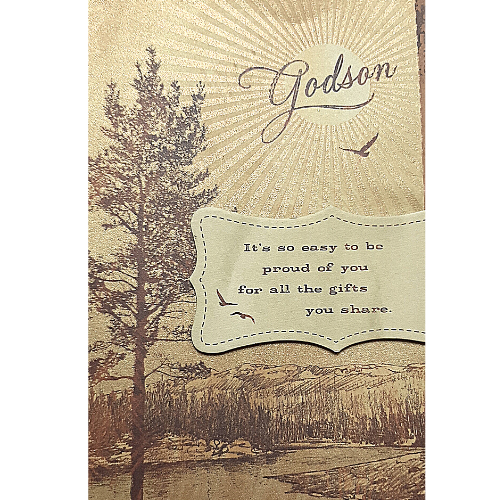 Godson
It's so easy to be
proud of you
for all the gifts
you share.